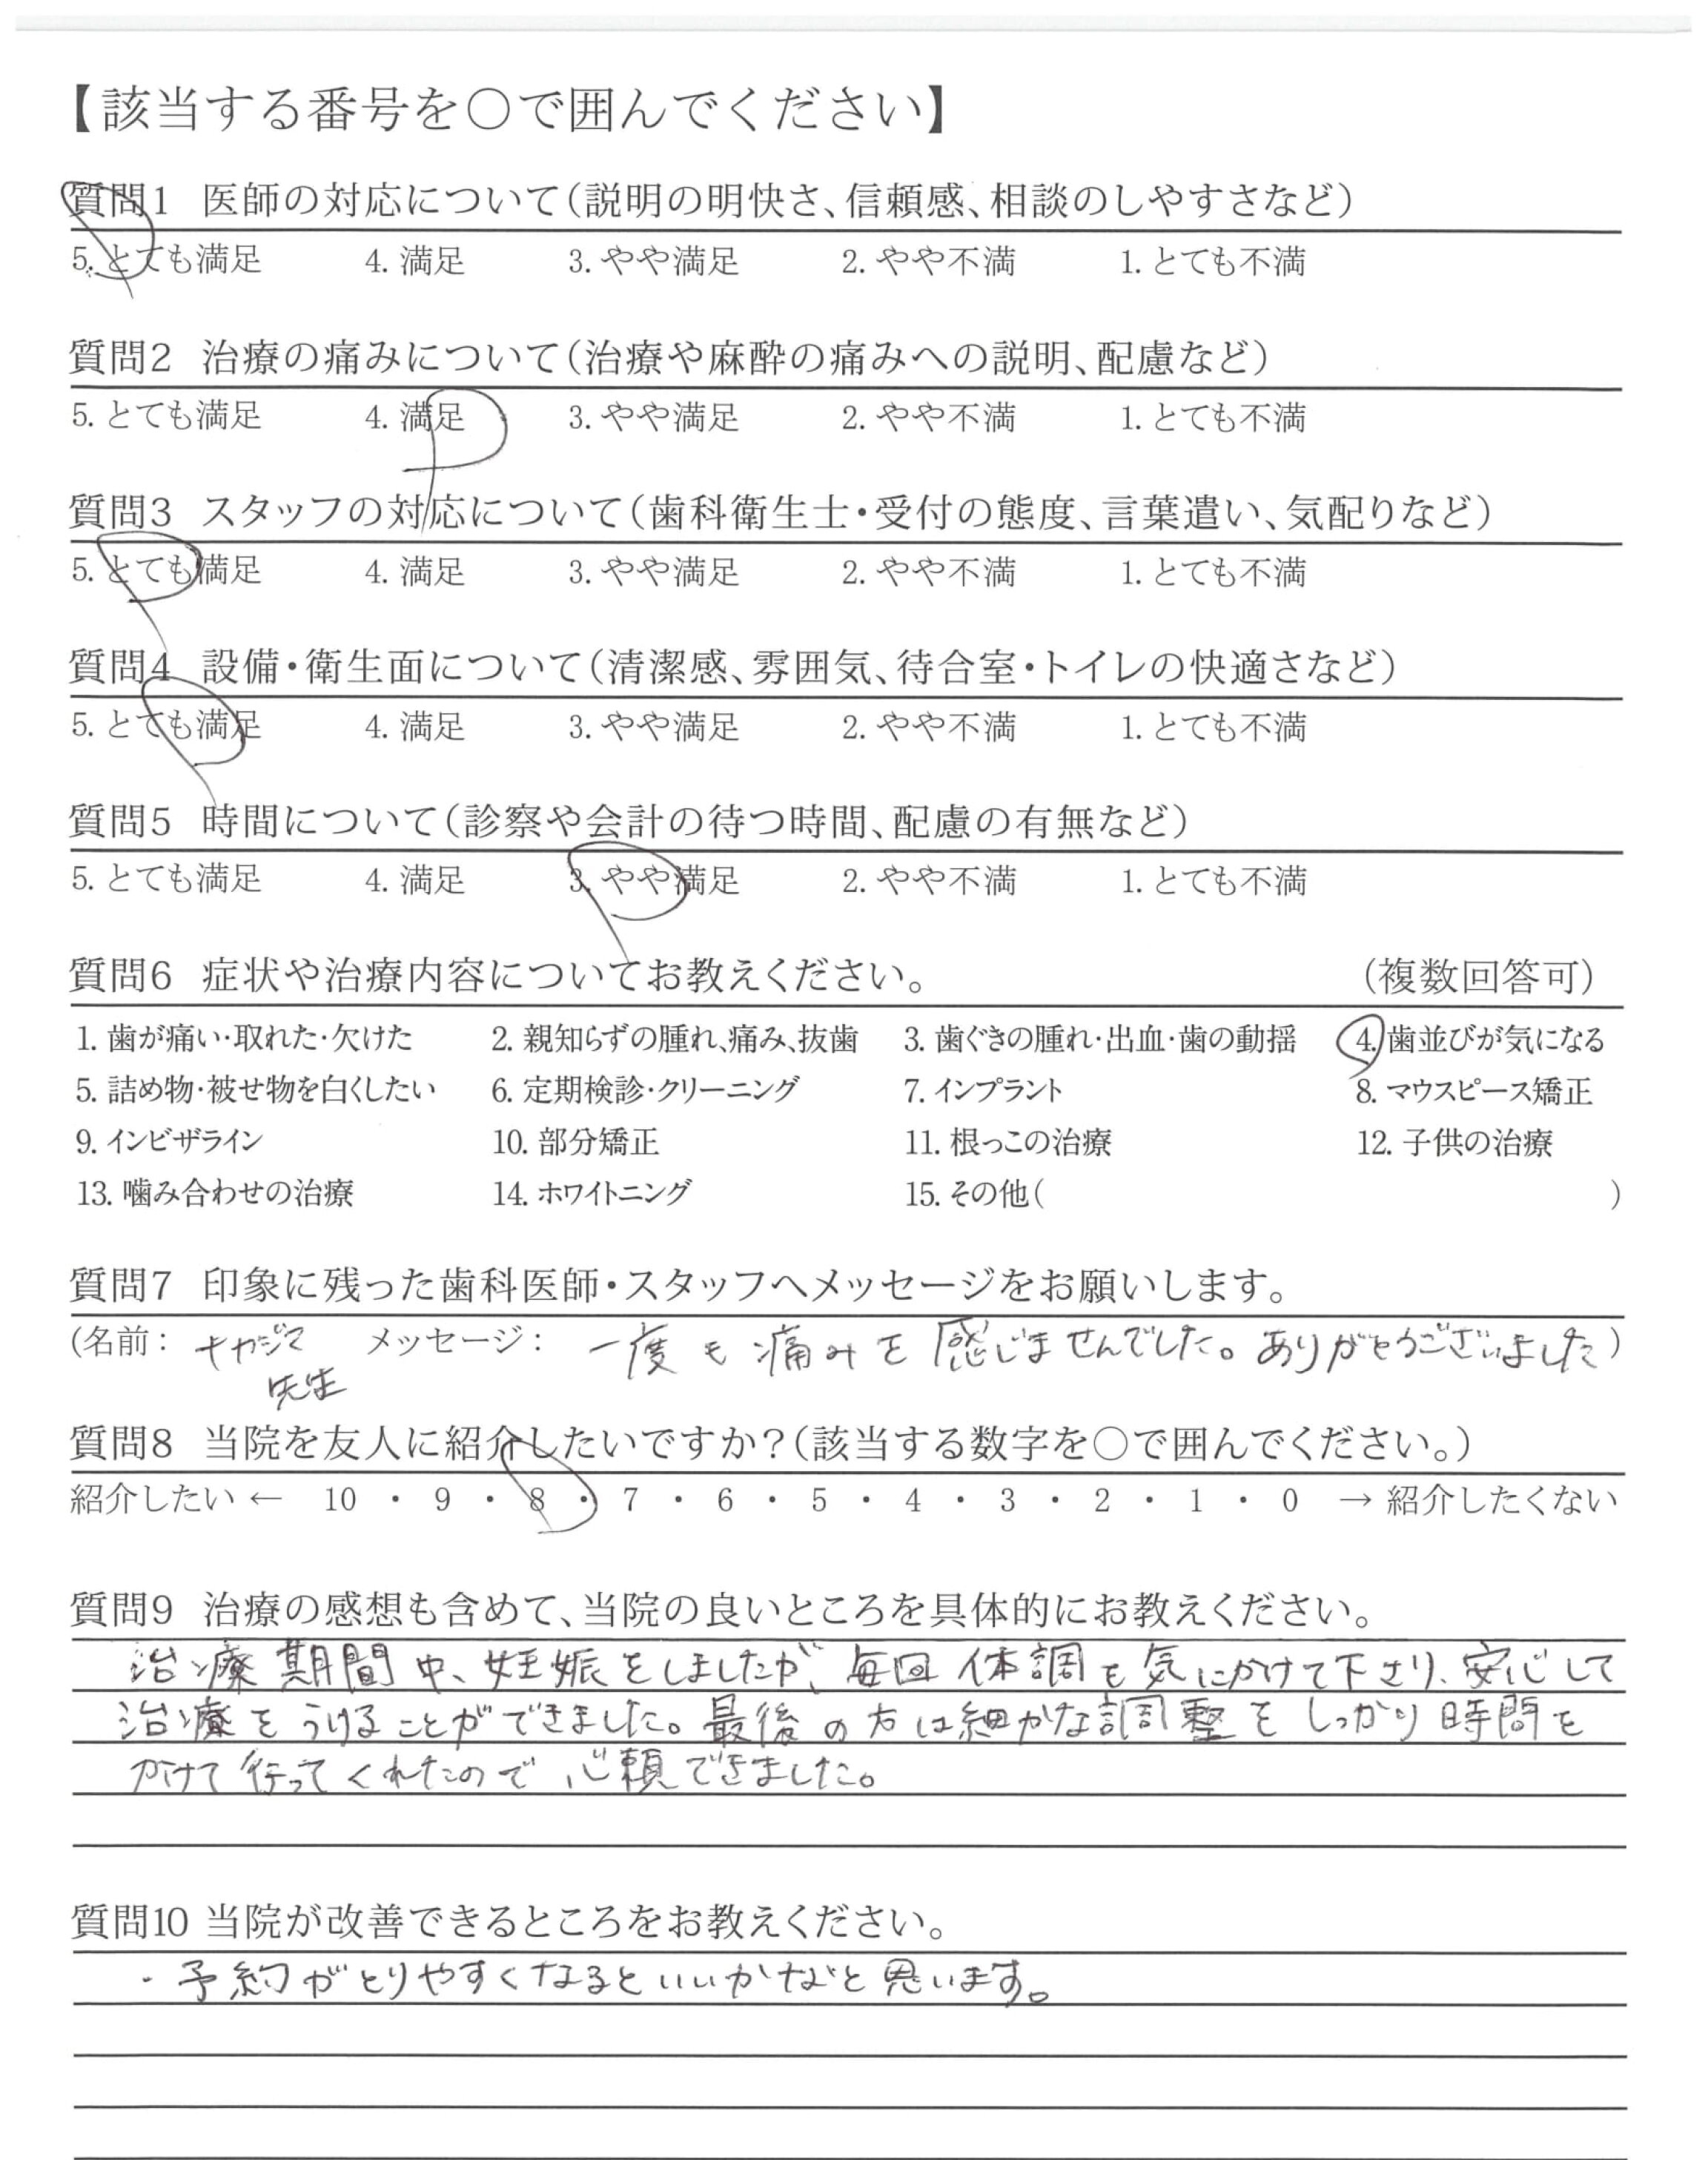 【該当する番号を〇で囲んでください】
質問1 医師の対応について(説明の明快さ、信頼感、相談のしやすさなど)
5. とても満足 4. 満足 3. やや満足 2. やや不満 1. とても不満
質問2 治療の痛みについて(治療や麻酔の痛みへの説明、配慮など)
5. とても満足 4. 満足 3. やや満足 2. やや不満 1. とても不満
質問3 スタッフの対応について(歯科衛生士・受付の態度、言葉遣い、気配りなど)
5. とても満足 4. 満足 3. やや満足 2. やや不満 1. とても不満
質問4 設備・衛生面について(清潔感、雰囲気、待合室・トイレの快適さなど)
5. とても満足 4. 満足 3. やや満足 2. やや不満 1. とても不満
質問5 時間について(診察や会計の待つ時間、配慮の有無など)
5. とても満足 4. 満足 3. やや満足 2. やや不満 1. とても不満
質問6 症状や治療内容についてお教えください。 (複数回答可)
1. 歯が痛い・取れた・欠けた 2. 親知らずの腫れ、痛み、抜歯 3. 歯ぐきの腫れ・出血・歯の動揺 4. 歯並びが気になる
5. 詰め物・被せ物を白くしたい 6. 定期検診・クリーニング 7. インプラント 8. マウスピース矯正
9. インビザライン 10. 部分矯正 11. 根っこの治療 12. 子供の治療
13. 噛み合わせの治療 14. ホワイトニング 15. その他( )
質問7 印象に残った歯科医師・スタッフへメッセージをお願いします。
(名前: ヤカジマ メッセージ: 一度も痛みを感じませんでした。ありがとうございました)
先生
質問8 当院を友人に紹介したいですか?(該当する数字を〇で囲んでください。)
紹介したい ← 10 ・ 9 ・ 8 ・ 7 ・ 6 ・ 5 ・ 4 ・ 3 ・ 2 ・ 1 ・ 0 → 紹介したくない
質問9 治療の感想も含めて、当院の良いところを具体的にお教えください。
治療期間中、妊娠をしましたが、毎回体調を気にかけて下さり、安心して
治療をうけることができました。最後の方は細かな調整をしっかり時間を
かけて行ってくれたので心頼できました。
質問10 当院が改善できるところをお教えください。
・予約がとりやすくなるといいかなと思います。